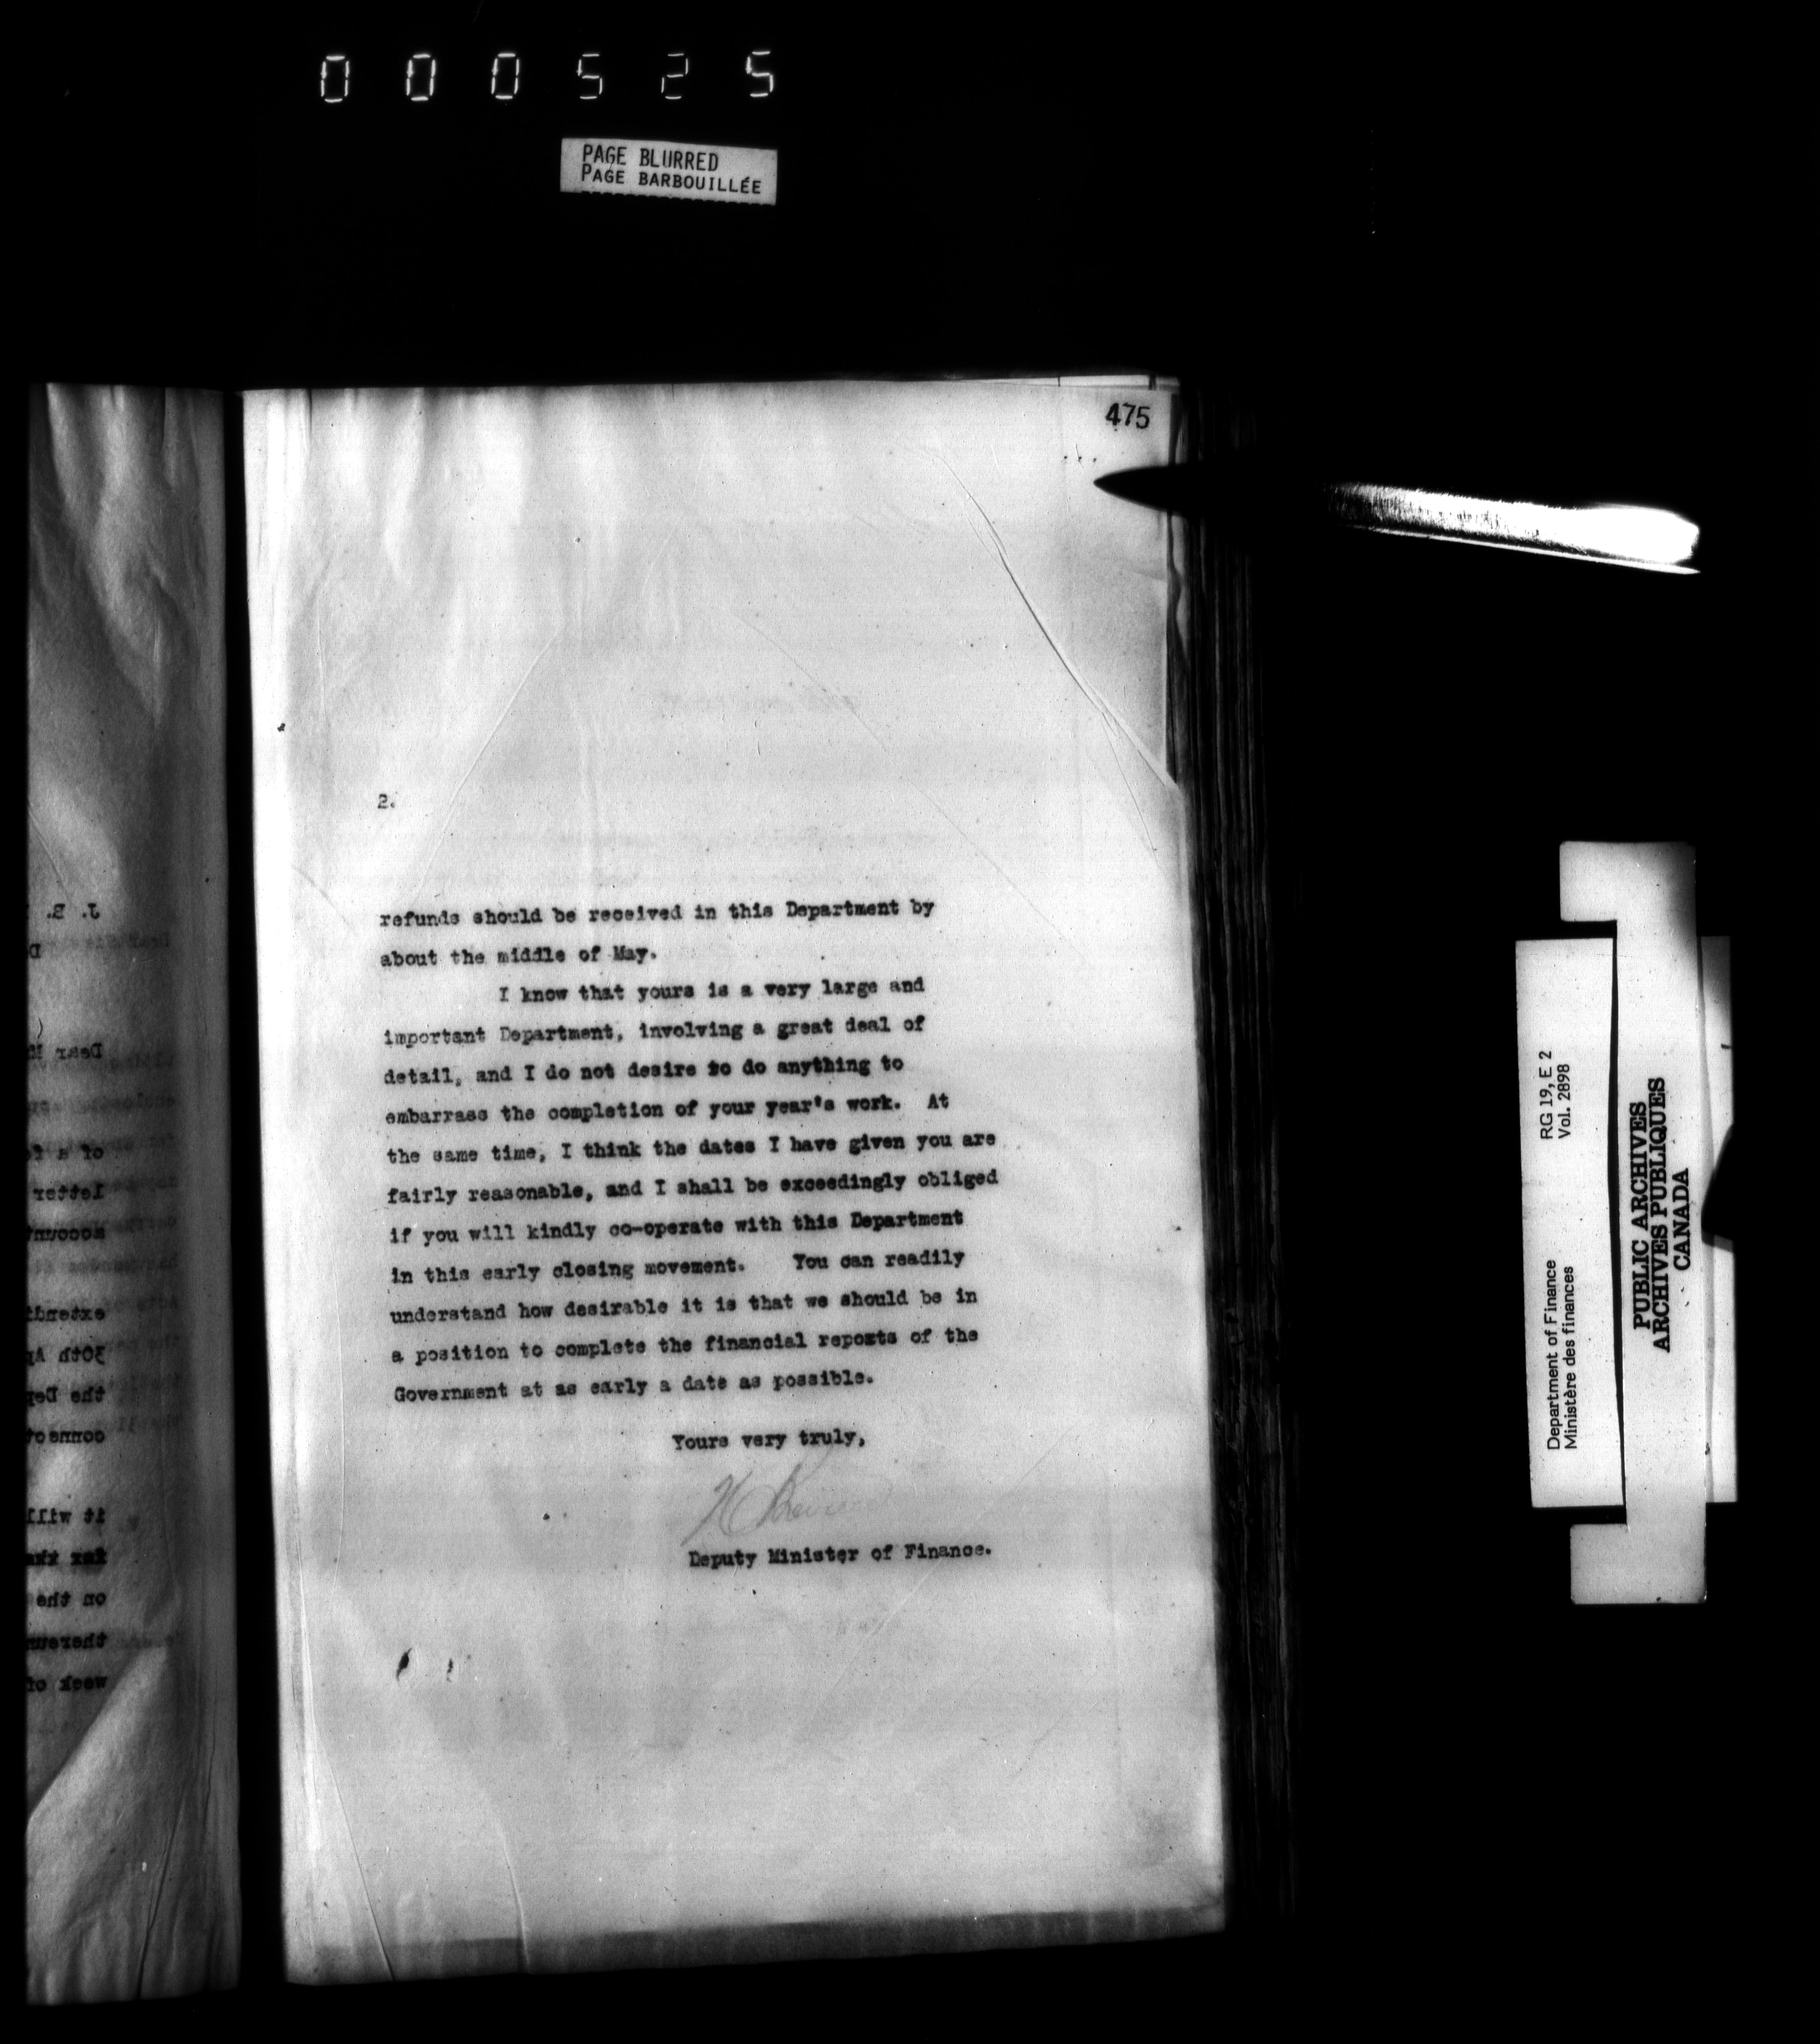 000525
PAGE BLURRED
PAGE BARBOUILLÉE
475
2.
refunds should be received in this Department by
about the middle of May.
I know that yours is a very large and
important Department, involving a great deal of
detail, and I do not desire to do anything to
embarrass the completion of your year's work. At
the same time, I think the dates I have given you are
fairly reasonable, and I shall be exceedingly obliged
if you will kindly co-operate with this Department
in this early closing movement. You can readily
understand how desirable it is that we should be in
a position to complete the financial reports of the
Government at as early a date as possible.
Yours very truly,
Deputy Minister of Finance.
J. B.
Dear
of a
letter
account
extend
30th
the
connect
it will
on the
week of
Department of Finance RG 19, E 2
Ministère des finances Vol. 2898
PUBLIC ARCHIVES
ARCHIVES PUBLIQUES
CANADA